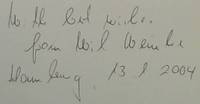 With best wishes
from
Hamburg, 13 1 2004